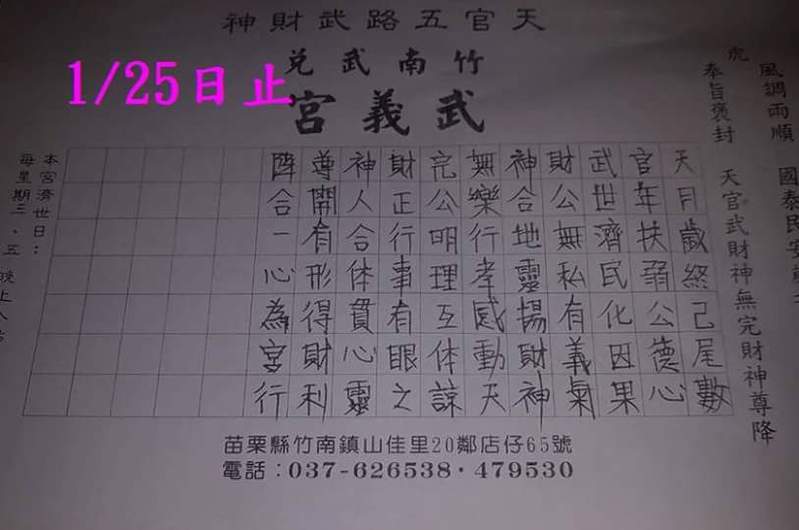 天官五路武財神
竹南武兌
武義宮
1/25日止
風調雨順 國泰民安
虎
奉旨褒封 天官武財神無完財神尊降
天月歲終己尾數
官年扶弱公德心
武世濟民化因果
財公無私有義氣
神合地靈揚財神
無樂行孝感動天
完公明理互体諒
財正行事有眼之
神人合体貫心靈
尊開有形得財利
降合一心為宮行
本宮濟世日：
每星期三、五 晚上八
苗栗縣竹南鎮山佳里20鄰店仔65號
電話：037-626538·479530